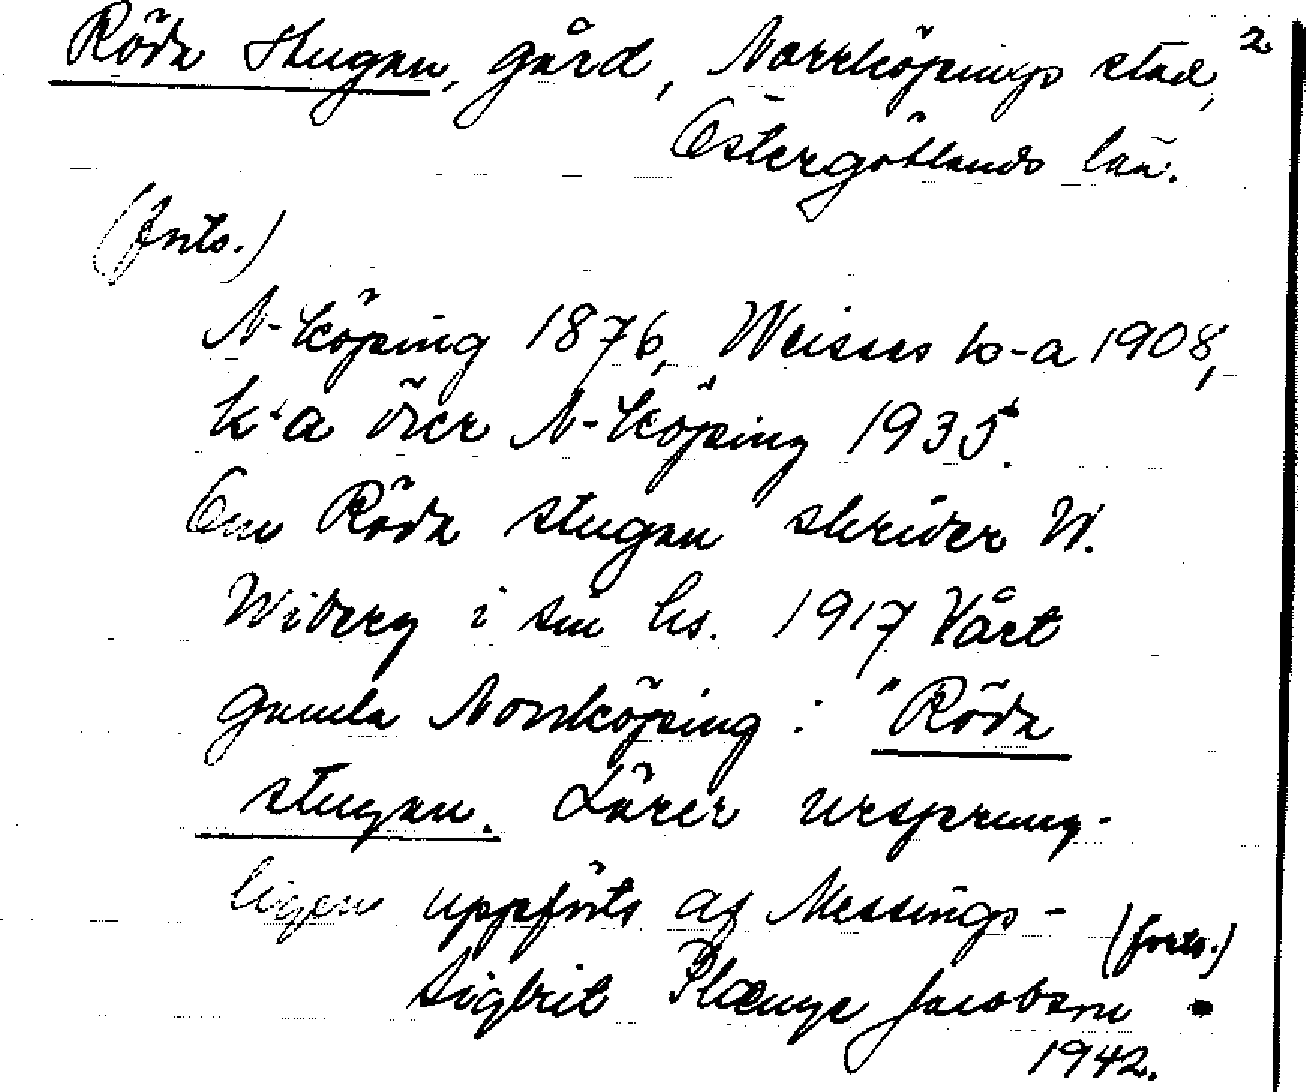 Röda Stugan, gård, Norrköpings stad, 2
Östergötlands län.
(forts.)
N-köping 1876, Weisses to-a 1908,
k-a över N-köping 1935.
Om Röda stugan skriver W.
Wiberg i sin hs. 1917 Vårt
gamla Norrköping: "Röda
stugan. Lärer ursprung-
ligen uppförts af Messings-
(forts.)
Sigbrit Plænge Jacobson
1942.